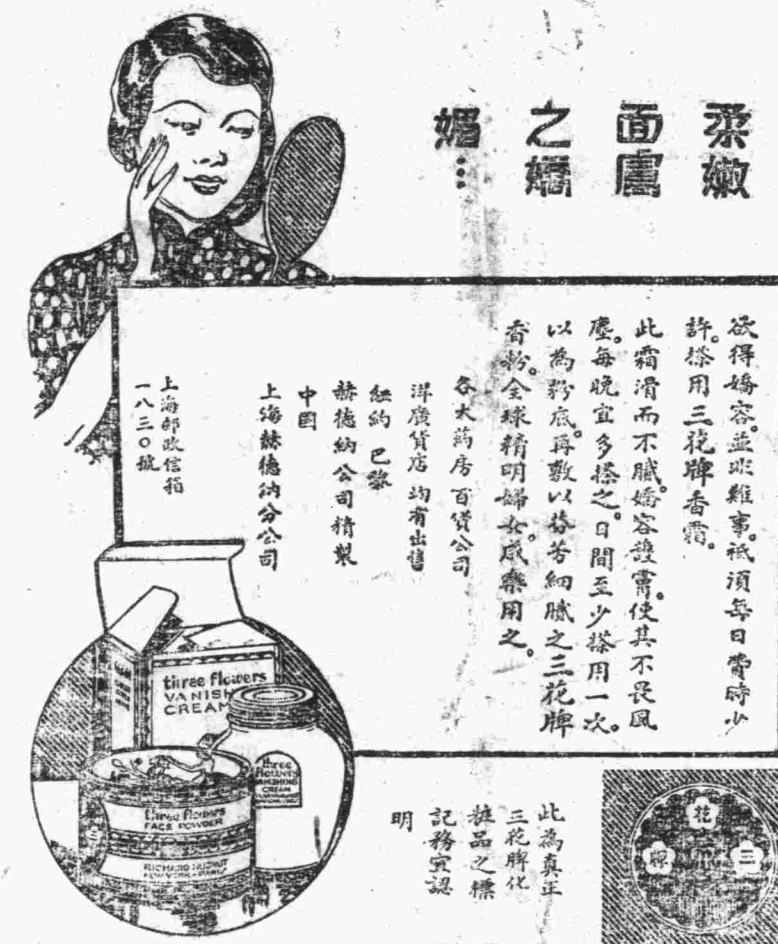 柔嫩
面膚
之嬌
媚…
欲得嬌容。並非難事。祇須每日費時少
許。搽用三花牌香霜。
此霜滑而不膩。嬌容護膚。使其不畏風
塵。每晚宜多搽之。日間至少搽用一次。
以為粉底。再敷以芬芳細膩之三花牌
香粉。全球精明婦女。咸樂用之。
各大葯房 百貨公司
洋廣貨店 均有出售
紐約 巴黎
赫德納公司精製
中國
上海赫德納分公司
上海郵政信箱
一八三〇號
three flowers
VANISH
CREAM
three
flowers
VANISHING
CREAM
three flowers
FACE POWDER
RICHARD HUDNUT
此為真正
三花牌化
粧品之標
記務宜認
明
三花牌